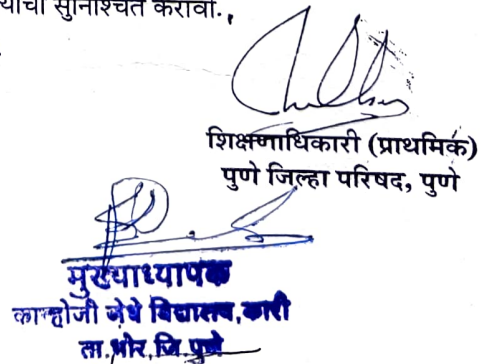 सुनिश्चित करावी.
शिक्षणाधिकारी (प्राथमिक)
पुणे जिल्हा परिषद, पुणे
मुख्याध्यापक
कान्होजी जेधे विद्यालय, कारी
ता.भोर, जि.पुणे